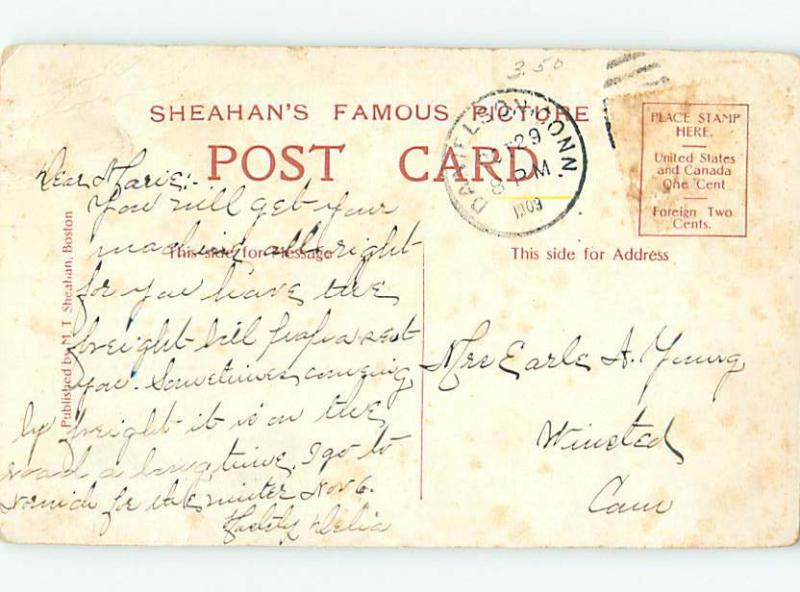 3.50
SHEAHAN'S FAMOUS PICTURE
POST CARD.
DANIELSON, CONN.
OCT 29
8 PM
1909
PLACE STAMP
HERE.
United States
and Canada
One Cent
Foreign Two
Cents.
This side for Message
This side for Address
Published by M. T. Sheahan, Boston
Dear Marie:-
You will get your
machine all right
for you have the
freight bill
you. Sometimes coming
by freight it is on the
road a long time. I go to
Norwich for the winter Nov 6.
Delia
Mrs Earle A. Young
Winsted
Conn